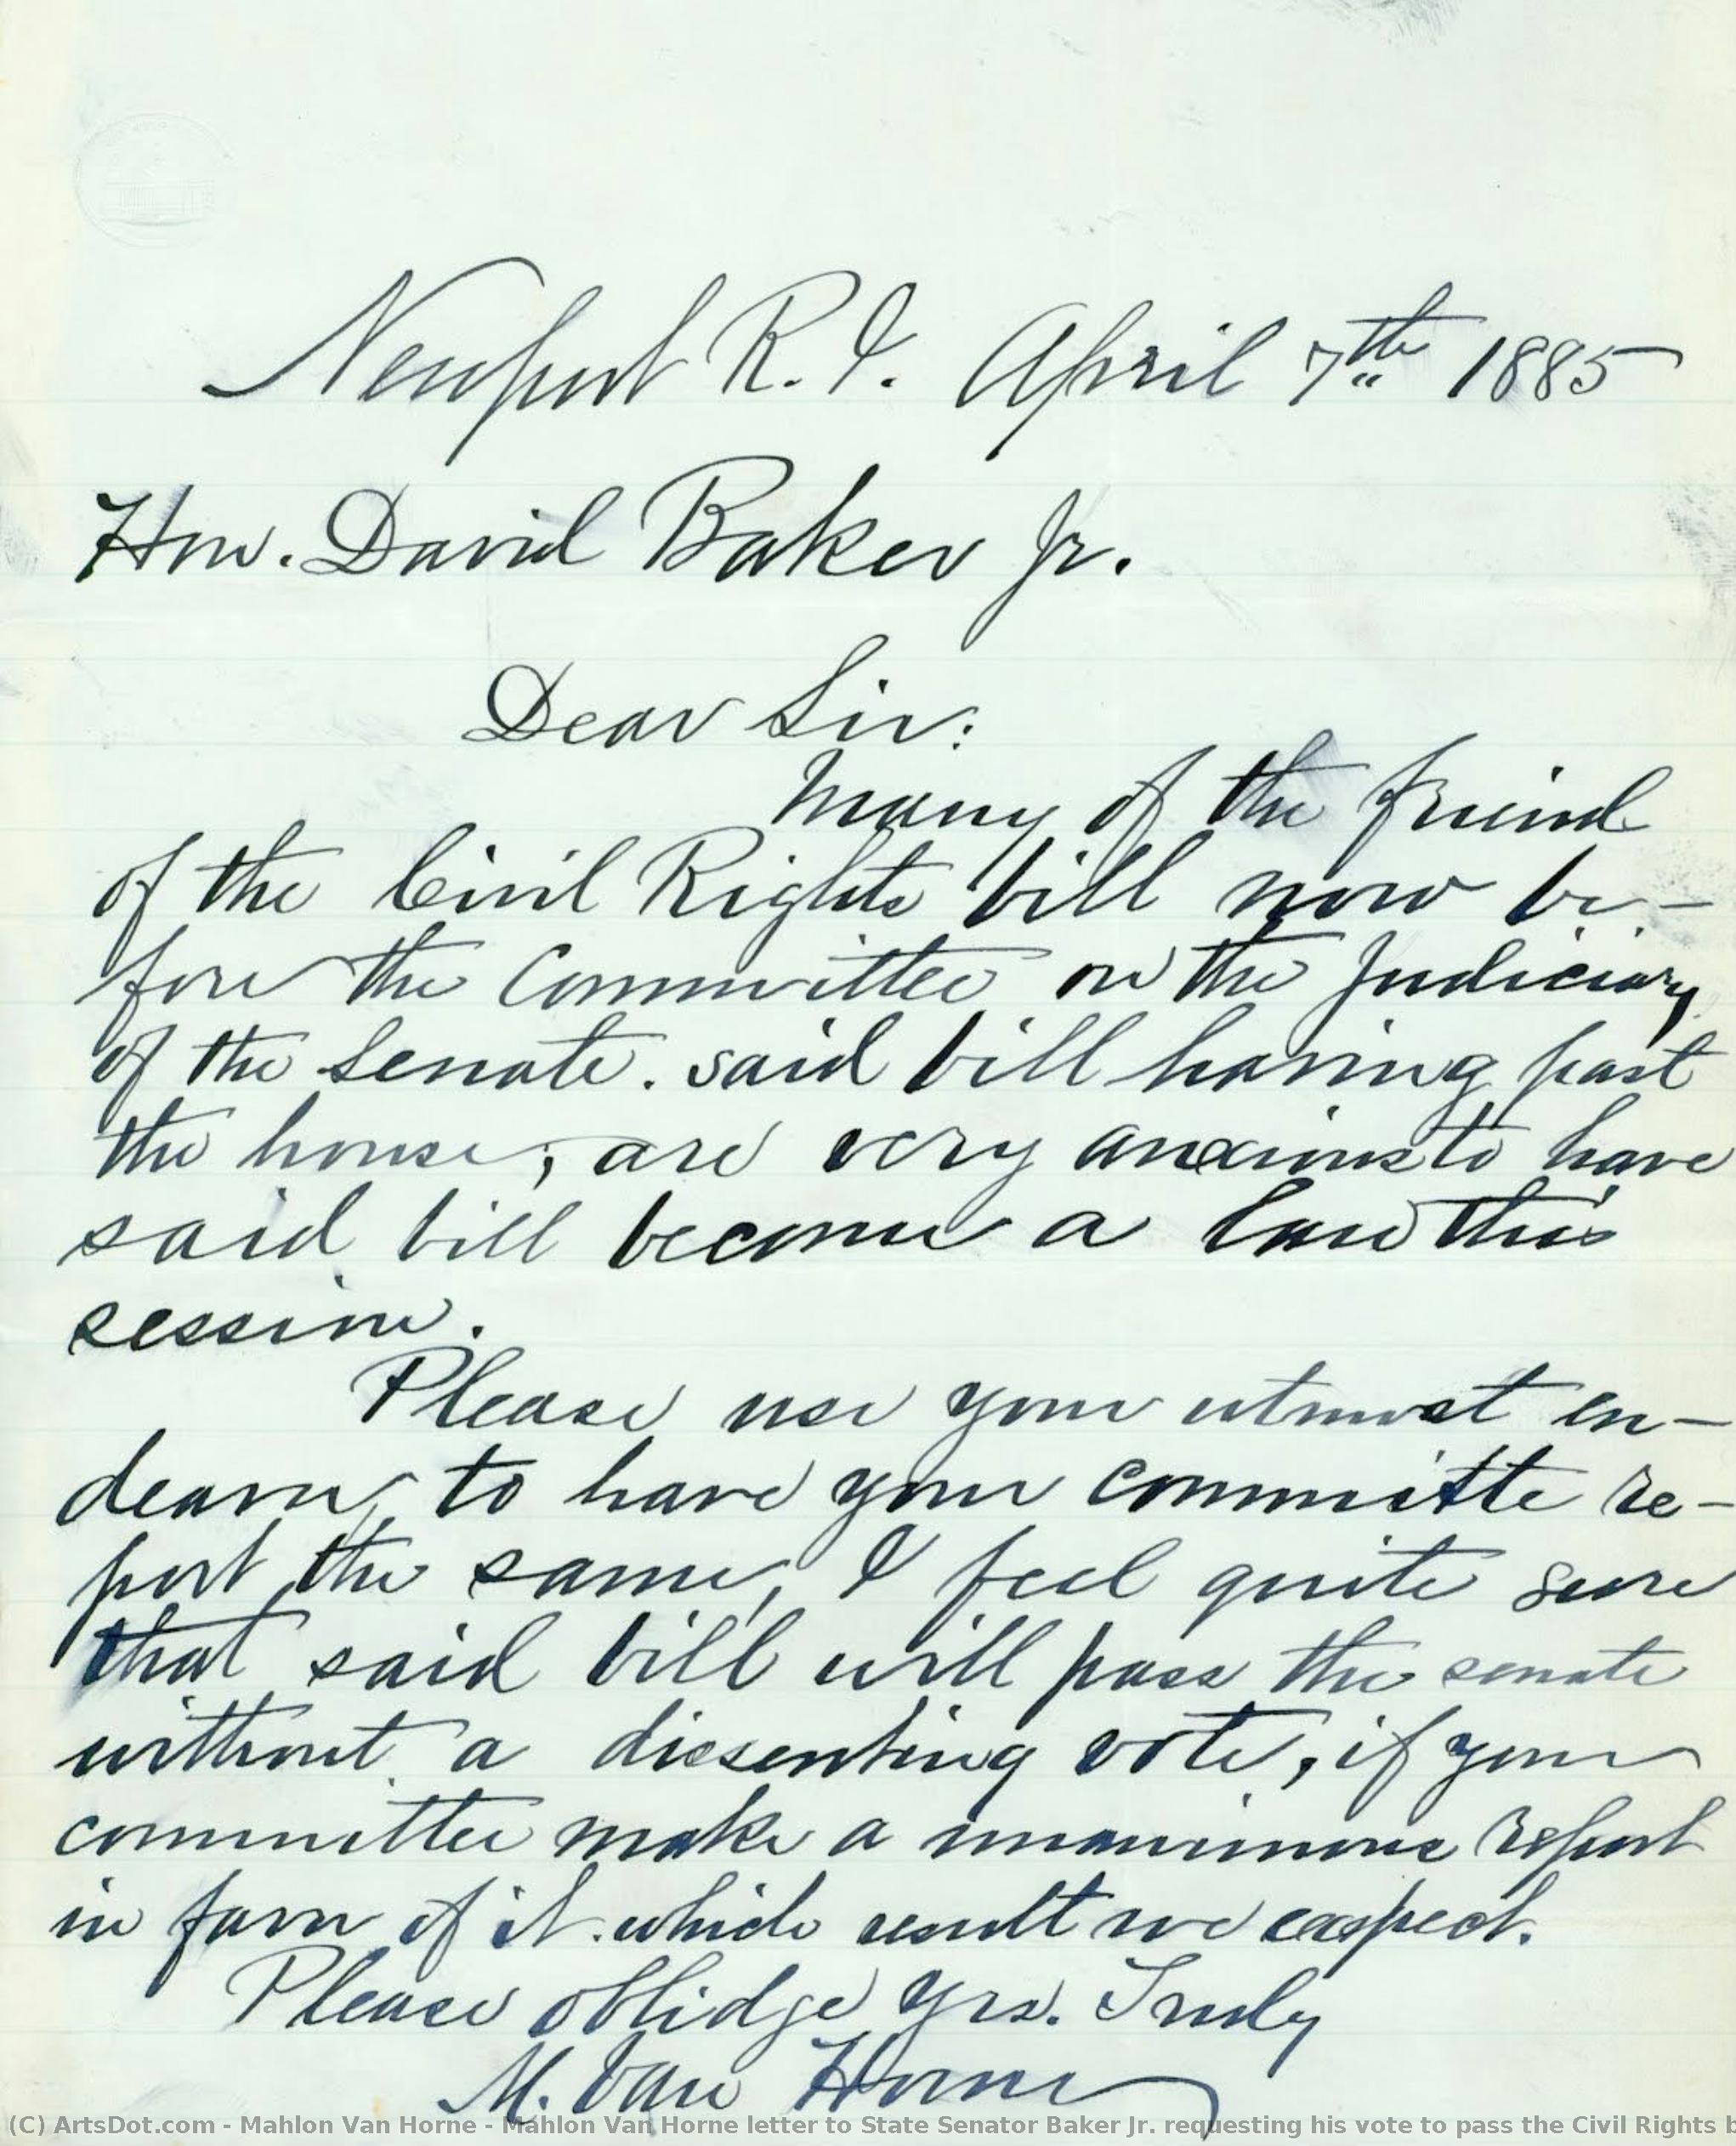 Newport R.I. April 7th 1885
Hon. David Baker Jr.
Dear Sir:
Many of the friend
of the Civil Rights bill now be-
fore the Committee on the Judiciary
of the Senate. said bill having past
the house, are very anxious to have
said bill become a law this
session.
Please use your utmost en-
deavor, to have your committe re-
port the same, I feel quite sure
that said bill will pass the senate
without a dissenting vote, if your
committee make a unanimous report
in favor of it. which result we expect.
Please oblidge yrs. Truly
M. Van Horne
(C) ArtsDot.com - Mahlon Van Horne - Mahlon Van Horne letter to State Senator Baker Jr. requesting his vote to pass the Civil Rights b